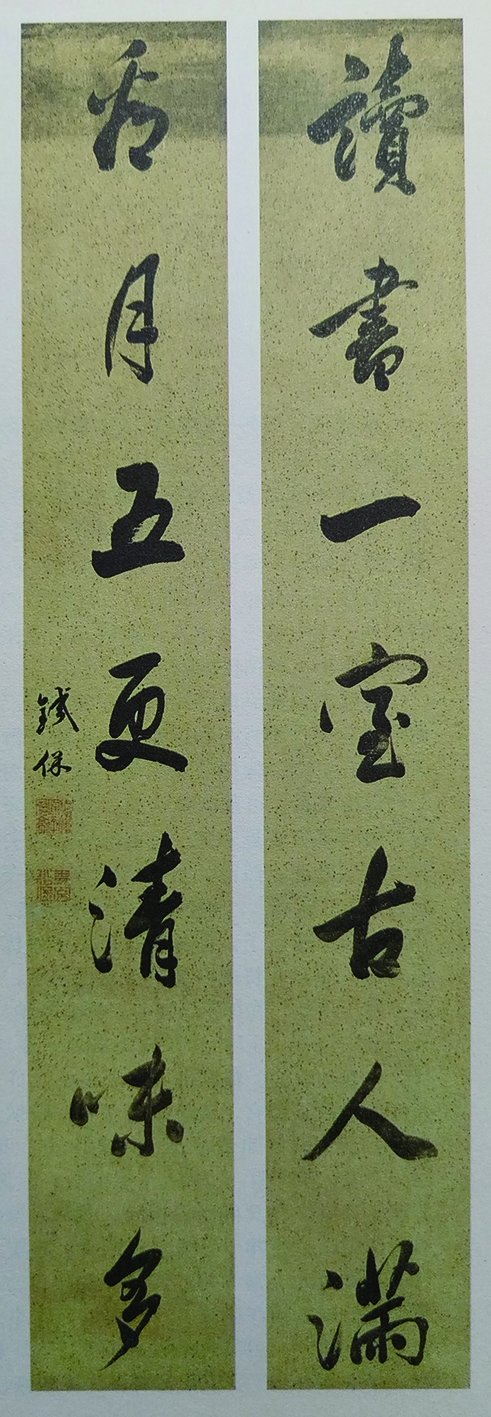 讀書一室古人滿
看月五更清味多
鐵保